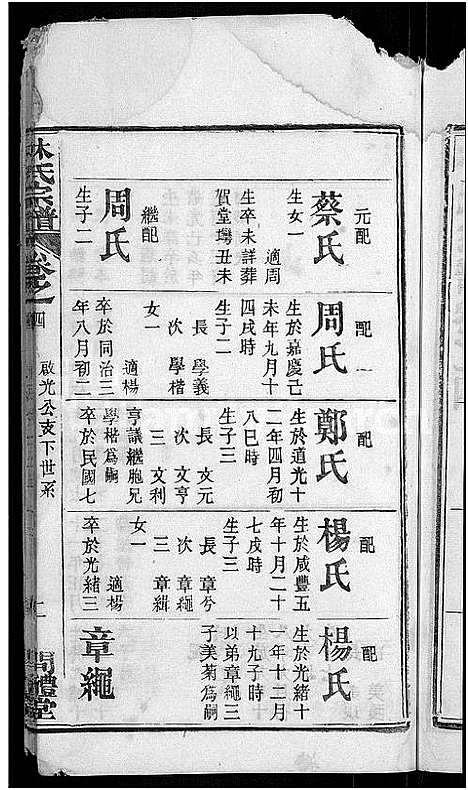 元配
蔡氏
生卒未詳葬
賀堂塆丑未
生女一 適周
繼配
周氏
生子二
配
周氏
生於嘉慶己
未年九月十
四戌時
生子二
長 學義
次 學楷
女一 適楊
卒於同治三
年八月初二
配
鄭氏
生於道光十
二年四月初
八巳時
生子三
長 文元
次 文亨
三 文利
亨議繼胞兄
學楷爲嗣
卒於民國七
配
楊氏
生於咸豐五
年十月二十
七戌時
生子三
長 章兮
次 章繩
三 章緝
女一 適楊
卒於光緒三
配
楊氏
生於光緒十
一年十二月
十九子時
以弟章繩三
子美菊爲嗣
章繩
林氏宗譜
卷之四
啟光公支下世系
二
問禮堂